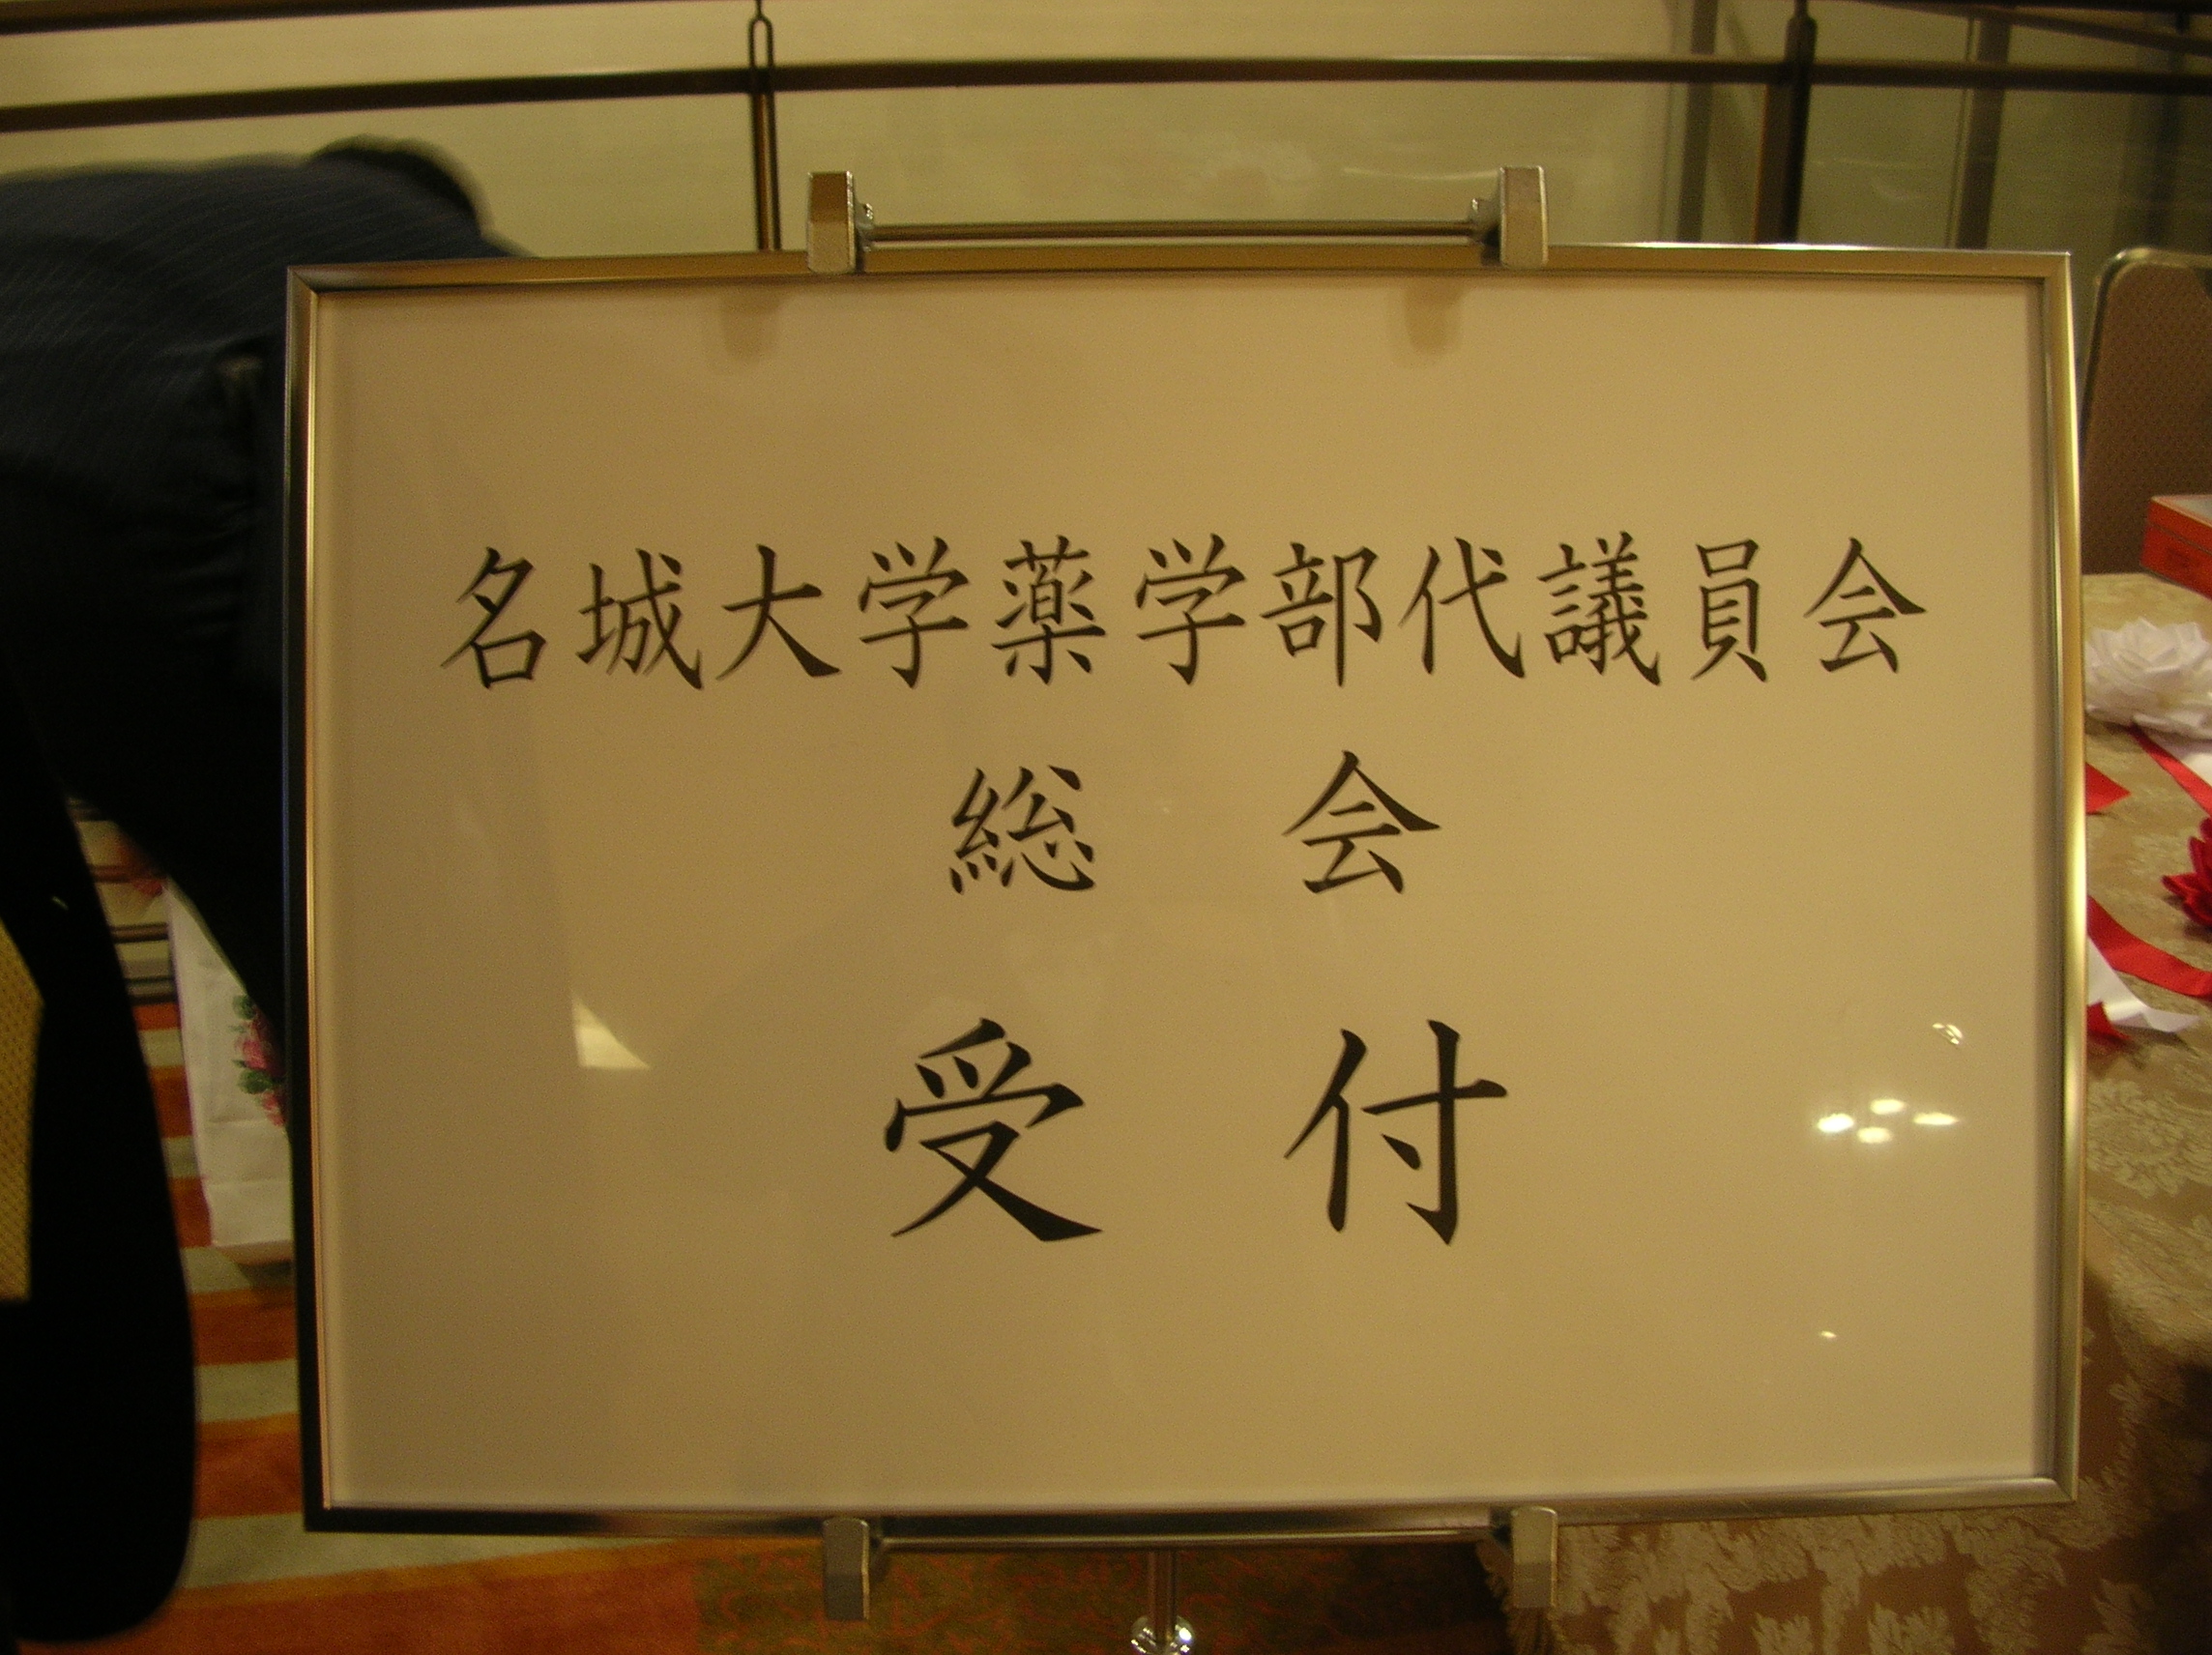 名城大学薬学部代議員会
総　会
受　付